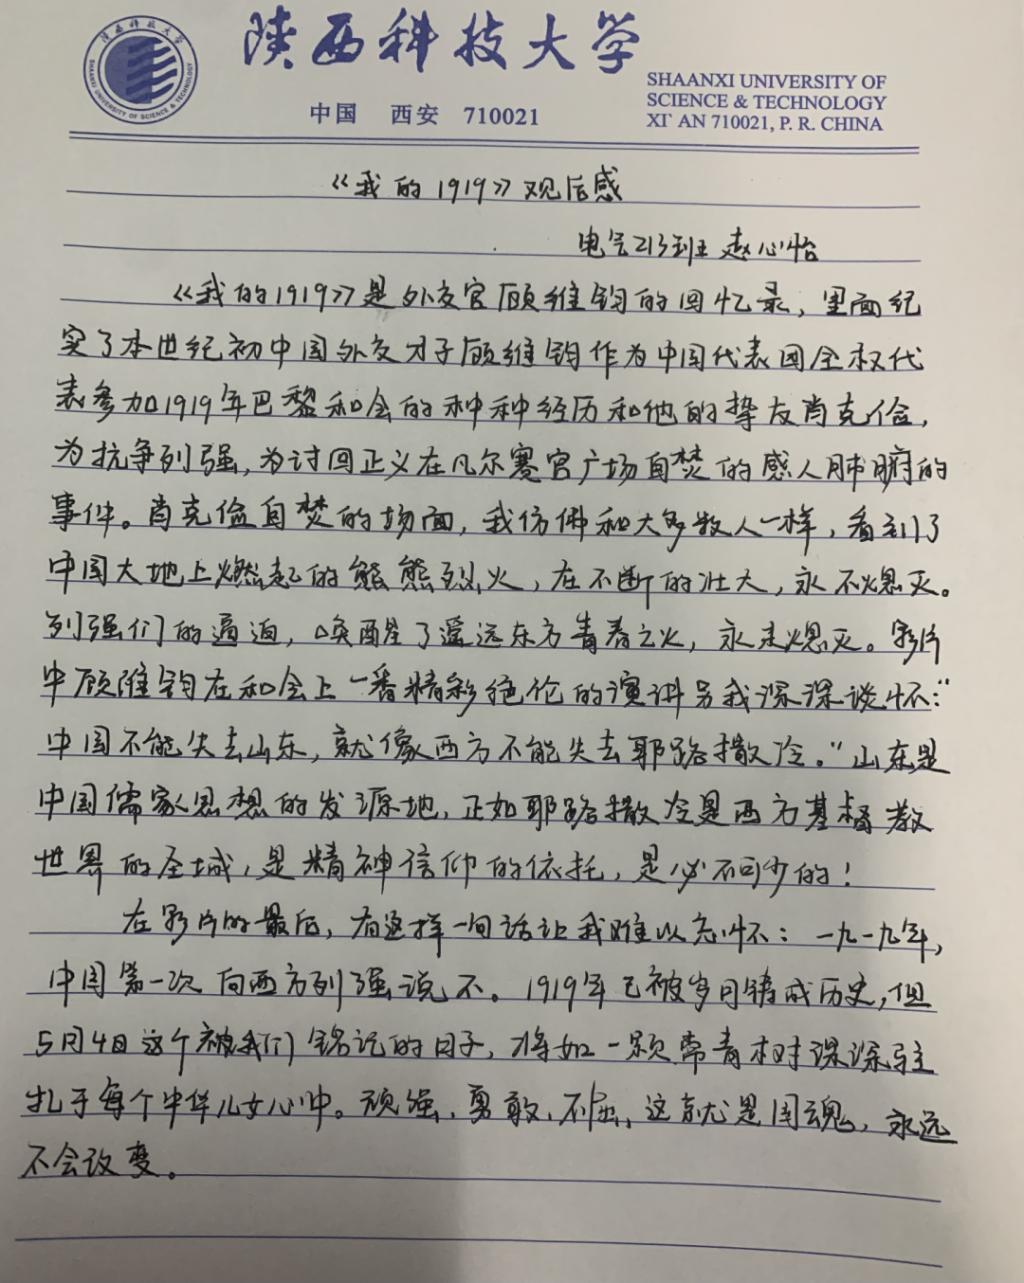 陕西科技大学
SHAANXI UNIVERSITY OF SCIENCE & TECHNOLOGY
陕西科技大学
中国 西安 710021
SHAANXI UNIVERSITY OF
SCIENCE & TECHNOLOGY
XI' AN 710021, P. R. CHINA
《我的1919》观后感
电气213班 赵心怡
《我的1919》是外交官顾维钧的回忆录，里面纪
实了本世纪初中国外交才子顾维钧作为中国代表团全权代
表参加1919年巴黎和会的种种经历和他的挚友肖克俭，
为抗争列强，为讨回正义在凡尔赛宫广场自焚的感人肺腑的
事件。肖克俭自焚的场面，我仿佛和大多数人一样，看到了
中国大地上燃起的熊熊烈火，在不断的壮大，永不熄灭。
列强们的逼迫，唤醒了遥远东方青春之火，永未熄灭。影片
中顾维钧在和会上一番精彩绝伦的演讲另我深深谈怀：“
中国不能失去山东，就像西方不能失去耶路撒冷。”山东是
中国儒家思想的发源地，正如耶路撒冷是西方基督教
世界的圣城，是精神信仰的依托，是必不可少的！
在影片的最后，有这样一句话让我难以忘怀：一九一九年，
中国第一次向西方列强说不。1919年已被岁月铸成历史，但
5月4日这个被我们铭记的日子，将如一颗常青树深深驻
扎于每个中华儿女心中。顽强、勇敢、不屈、这就是国魂，永远
不会改变。